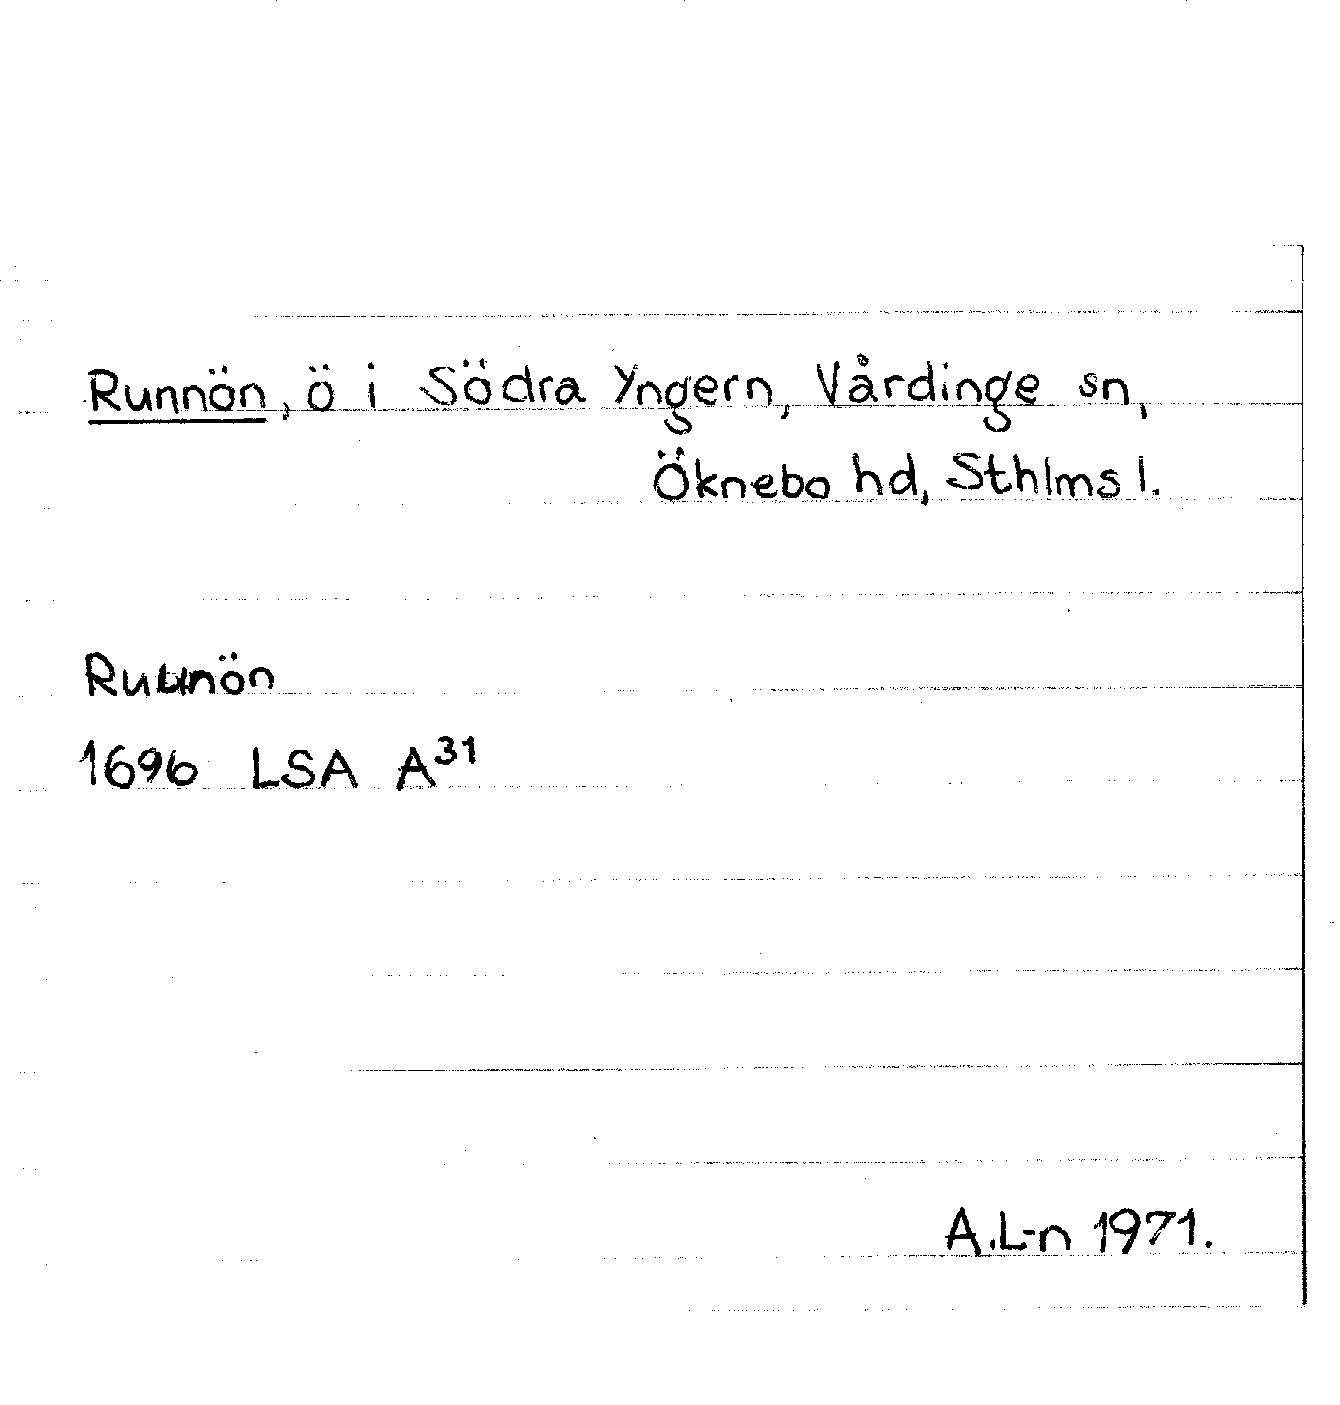 Runnön, ö i Södra Yngern, Vårdinge sn,
Öknebo hd, Sthlms l.
Ruunön
1696 LSA A³¹
A.L-n 1971.